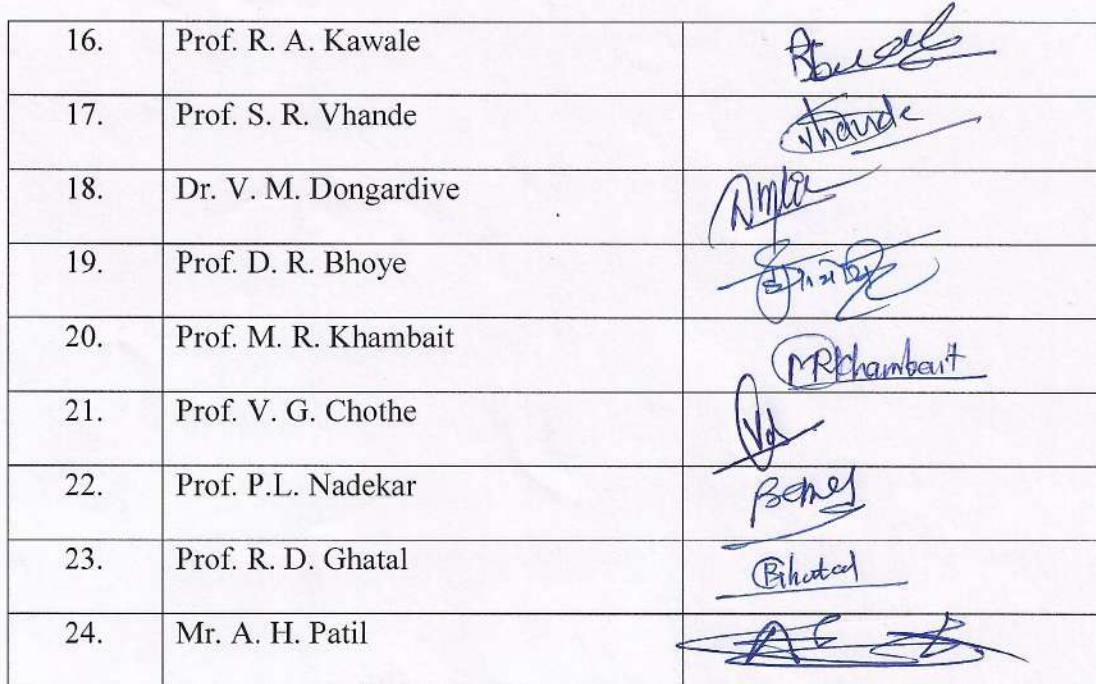 16. Prof. R. A. Kawale
17. Prof. S. R. Vhande Vhande
18. Dr. V. M. Dongardive
19. Prof. D. R. Bhoye
20. Prof. M. R. Khambait MRKhambait
21. Prof. V. G. Chothe
22. Prof. P.L. Nadekar
23. Prof. R. D. Ghatal
24. Mr. A. H. Patil